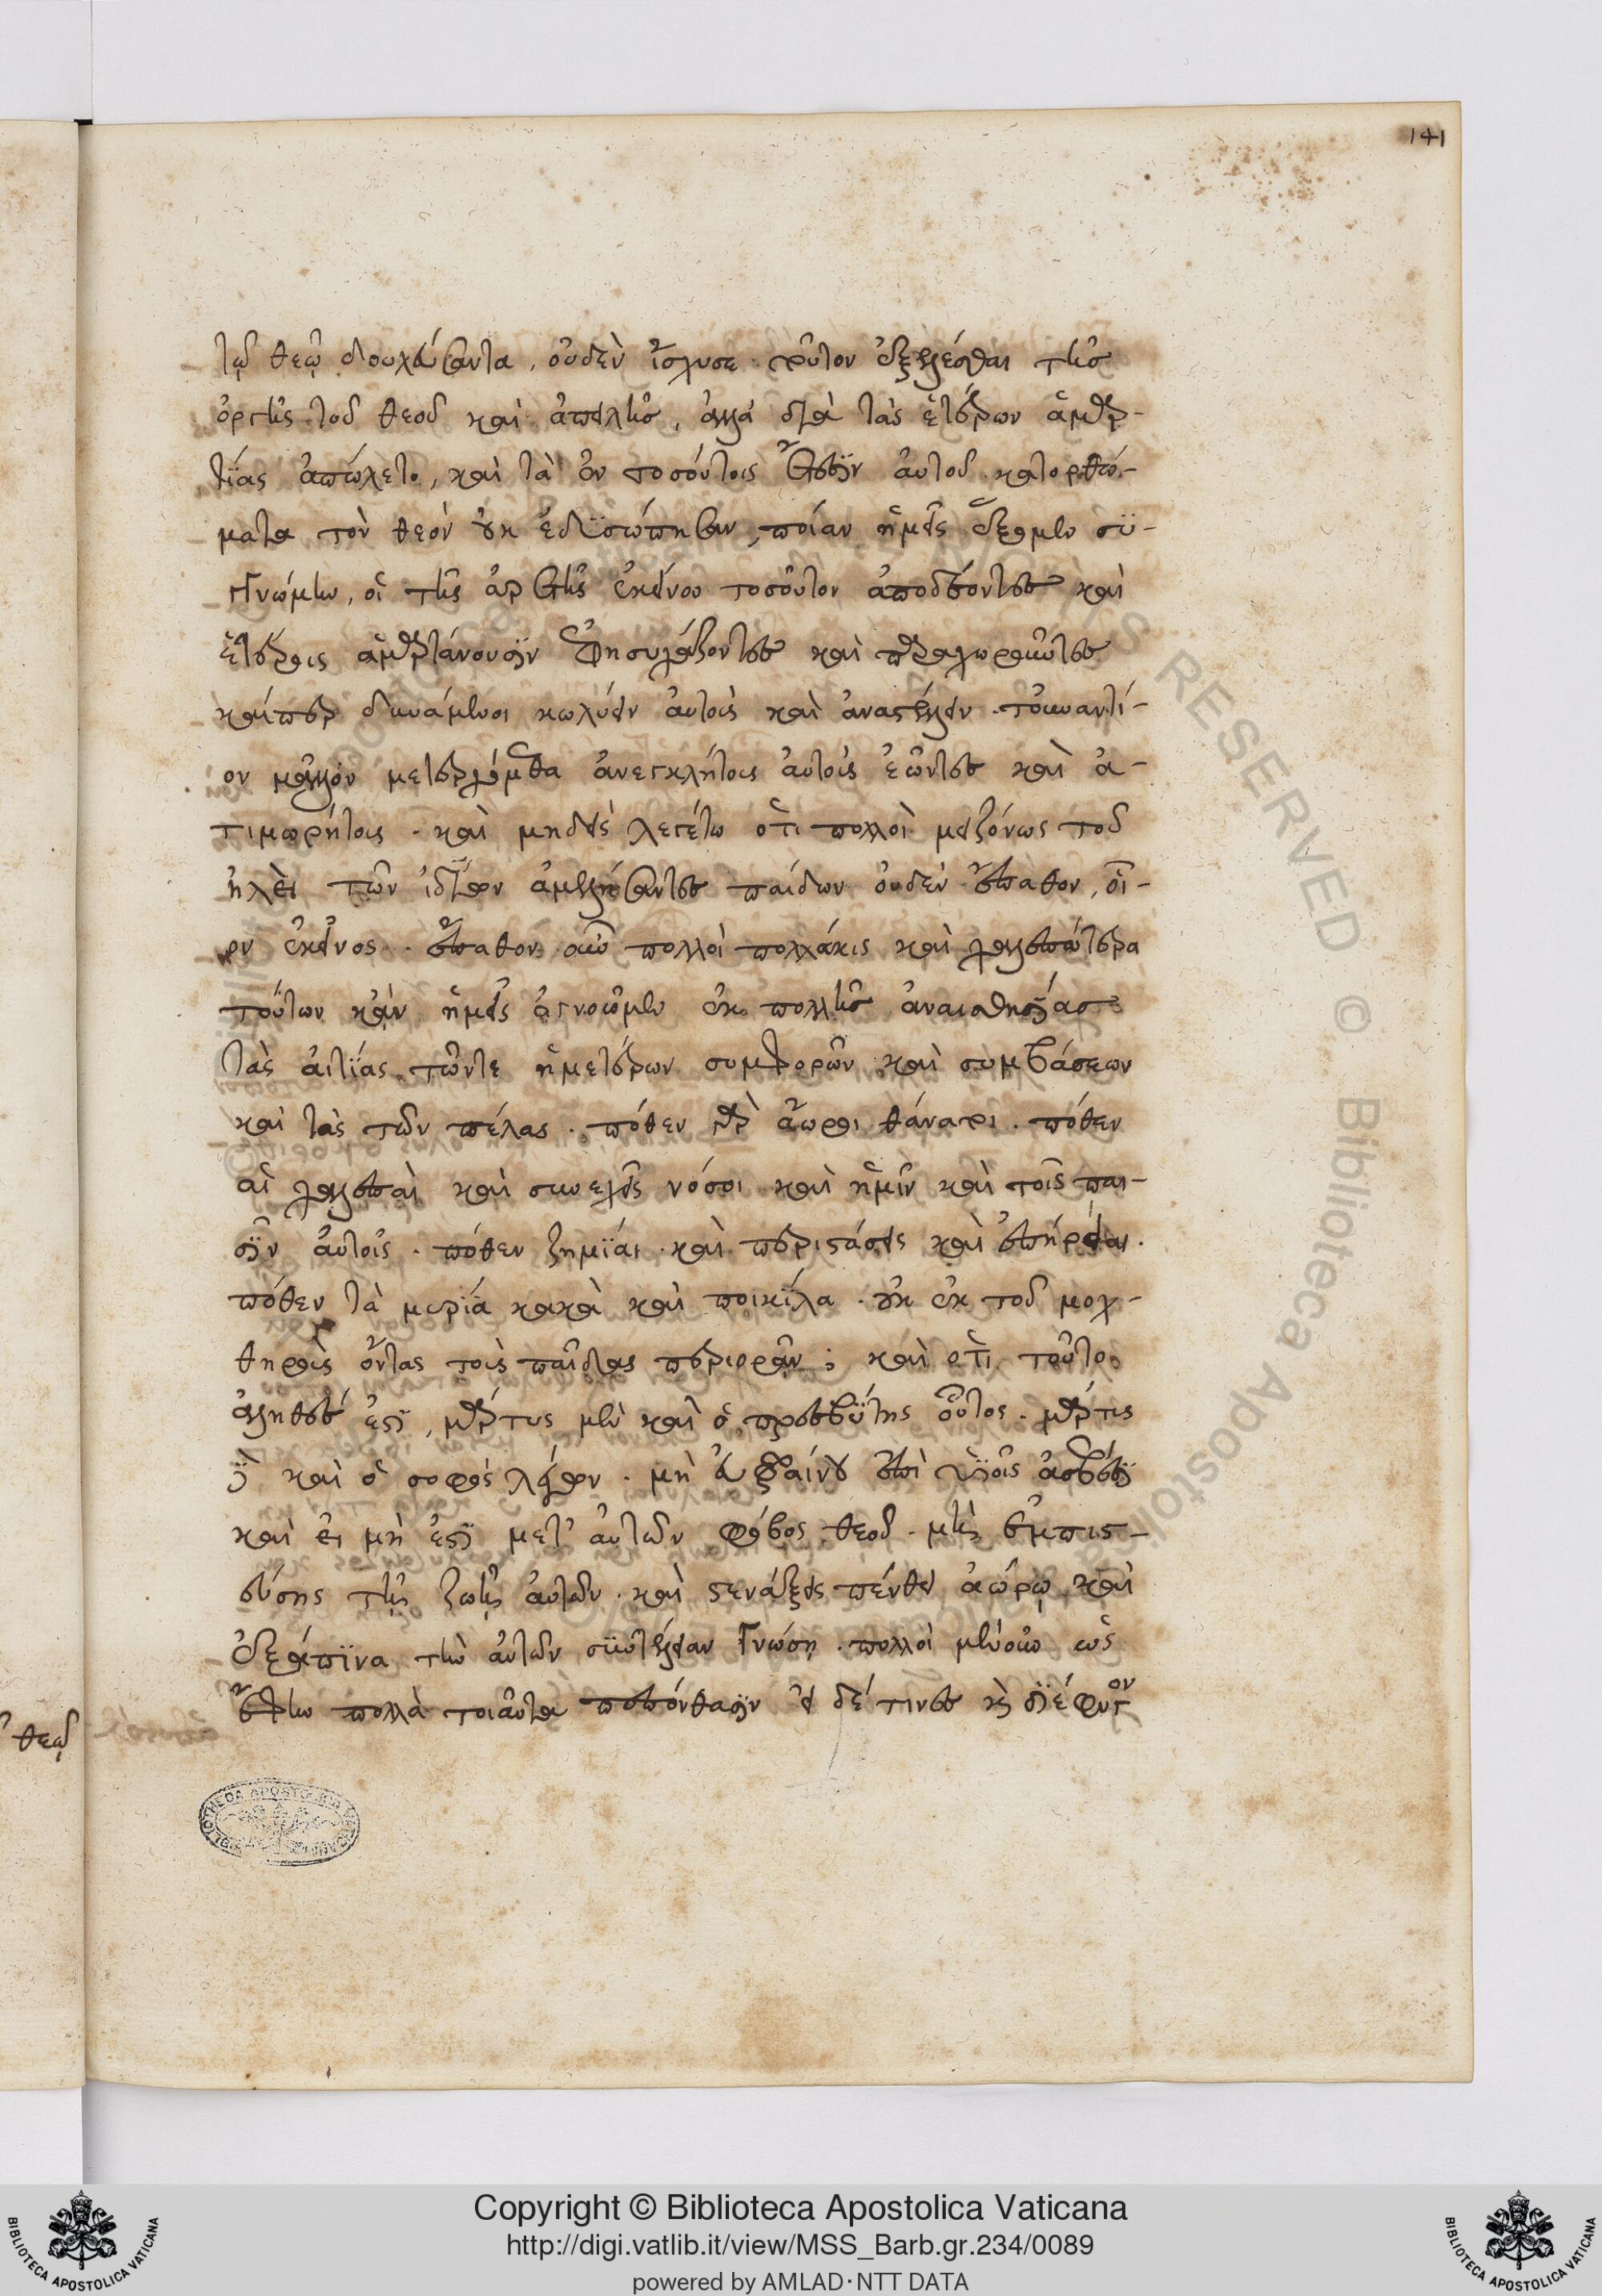 141
τῷ θεῷ δουλεύσαντα, οὐδὲν ἴσχυσε τοῦτον ἐξελέσθαι τῆς
ὀργῆς τοῦ θεοῦ καὶ ἀπειλῆς, ἀλλὰ διὰ τὰς ἑτέρων ἁμαρ-
τίας ἀπώλετο, καὶ τὰ ἐν τοσούτοις ἔτεσιν αὐτοῦ κατορθώ-
ματα τὸν θεὸν οὐκ ἐδυσώπησαν, ποίαν ἡμεῖς ἕξομεν συ-
γνώμην, οἱ τῆς ἀρετῆς ἐκείνου τοσοῦτον ἀποδέοντες καὶ
ἑτέροις ἁμαρτάνουσιν ἐφησυχάζοντες καὶ παραχωροῦντες
καίπερ δυνάμενοι κωλύειν αὐτοὺς καὶ ἀναστέλλειν. τοὐναντί-
ον μᾶλλον μετερχόμεθα ἀνεγκλήτους αὐτοὺς ἐῶντες καὶ ἀ-
τιμωρήτους. καὶ μηδεὶς λεγέτω ὅτι πολλοὶ μειζόνως τοῦ
ἠλεὶ τῶν ἰδίων ἀμελήσαντες παίδων οὐδὲν ἔπαθον, οἷ-
ον ἐκεῖνος. ἔπαθον οὖν πολλοὶ πολλάκις καὶ χαλεπώτερα
τούτων κἂν ἡμεῖς ἀγνοῶμεν ἐκ πολλῆς ἀναισθησίας
τὰς αἰτίας τῶντε ἡμετέρων συμφορῶν καὶ συμβάσεων
καὶ τὰς τῶν πέλας. πόθεν γὰρ ἄωροι θάνατοι. πόθεν
αἱ χαλεπαὶ καὶ συνεχεῖς νόσοι καὶ ἡμῖν καὶ τοῖς παι-
σὶν αὐτοῖς. πόθεν ζημίαι καὶ περιστάσεις καὶ ἐπήρειαι.
πόθεν τὰ μυρία κακὰ καὶ ποικίλα. οὐκ ἐκ τοῦ μοχ-
θηροὺς ὄντας τοὺς παῖδας περιορᾶν; καὶ ὅτι τοῦτο
ἀληθές ἐστι, μάρτυς μὲν καὶ ὁ πρεσβύτης οὗτος. μάρτυς
δὲ καὶ ὁ σοφὸς λέγων. μὴ εὐφραίνου ἐπὶ υἱοῖς ἀσεβέσι
καὶ εἰ μὴ ἐστι μετ' αὐτῶν φόβος θεοῦ. μὴ ἐμπισ-
τεύσῃς τῇ ζωῇ αὐτῶν. καὶ στενάξεις πένθει ἀώρῳ καὶ
ἐξάπινα τὴν αὐτῶν συντέλειαν γνώσῃ. πολλοὶ μὲν οὖν ὡς
ἔφην πολλὰ τοιαῦτα πεπόνθασιν εἰ δέ τινες καὶ διέφυγον
θεῷ
BIBLIOTHECA APOSTOLICA VATICANA
Copyright © Biblioteca Apostolica Vaticana
http://digi.vatlib.it/view/MSS_Barb.gr.234/0089
powered by AMLAD·NTT DATA